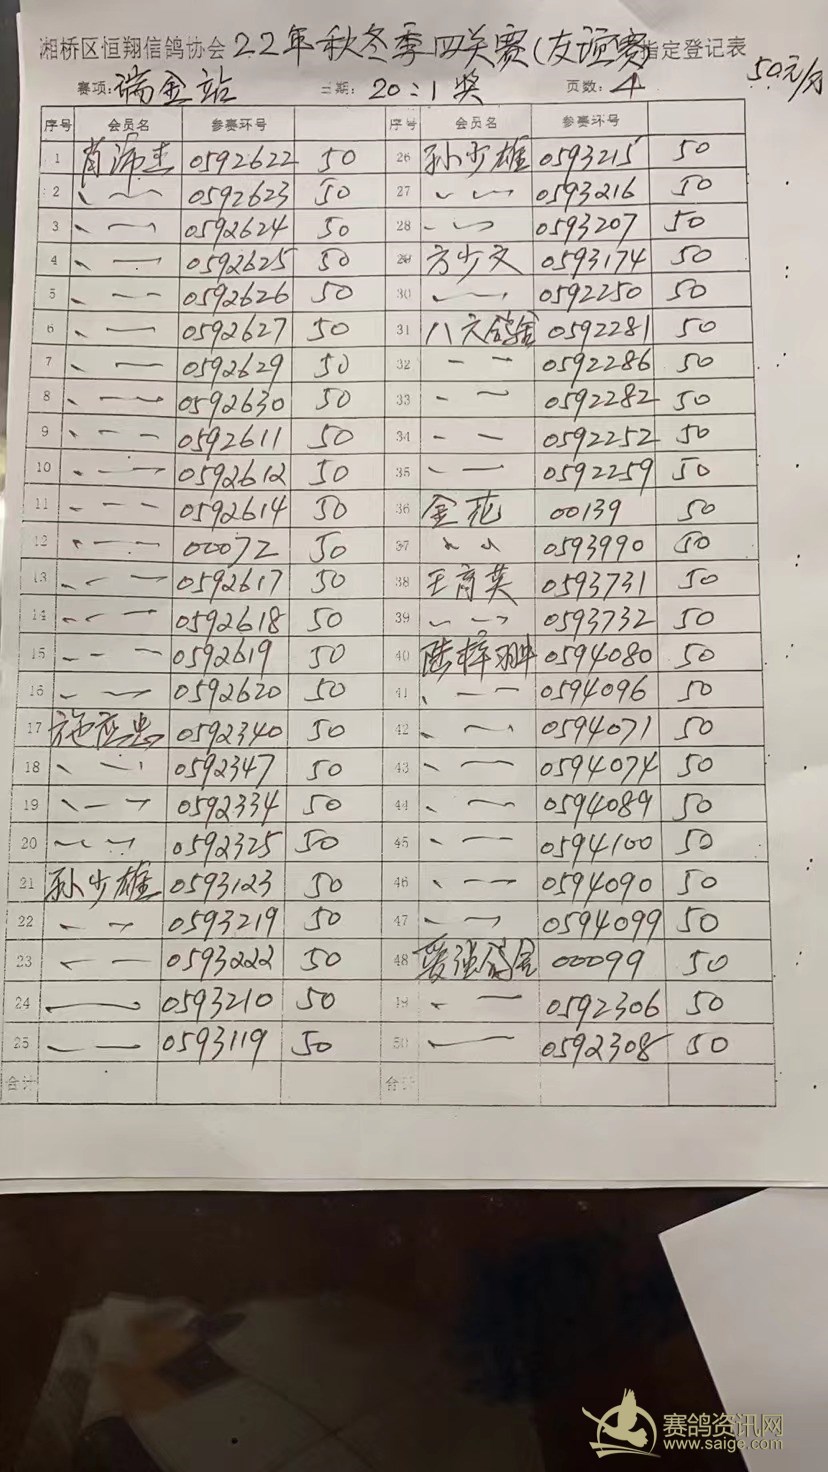 湘桥区恒翔信鸽协会22年秋冬季四关赛(友谊赛)指定登记表
赛项:瑞金站 日期:20:1奖 页数:4 50元/
序号 会员名 参赛环号 序号 会员名 参赛环号
1 肖沛杰 0592622 50 26 孙少雄 0593215 50
2 0592623 50 27 0593216 50
3 0592624 50 28 0593207 50
4 0592625 50 29 方少文 0593174 50
5 0592626 50 30 0592250 50
6 0592627 50 31 八六鸽舍 0592281 50
7 0592629 50 32 0592286 50
8 0592630 50 33 0592282 50
9 0592611 50 34 0592252 50
10 0592612 50 35 0592259 50
11 0592614 50 36 金花 00139 50
12 00072 50 37 0593990 50
13 0592617 50 38 王育英 0593731 50
14 0592618 50 39 0593732 50
15 0592619 50 40 陆梓翀 0594080 50
16 0592620 50 41 0594096 50
17 施应忠 0592340 50 42 0594071 50
18 0592347 50 43 0594074 50
19 0592334 50 44 0594089 50
20 0592325 50 45 0594100 50
21 孙少雄 0593123 50 46 0594090 50
22 0593219 50 47 0594099 50
23 0593222 50 48 爱强鸽舍 00099 50
24 0593210 50 49 0592306 50
25 0593119 50 50 0592308 50
合计 合计
赛鸽资讯网
www.saige.com